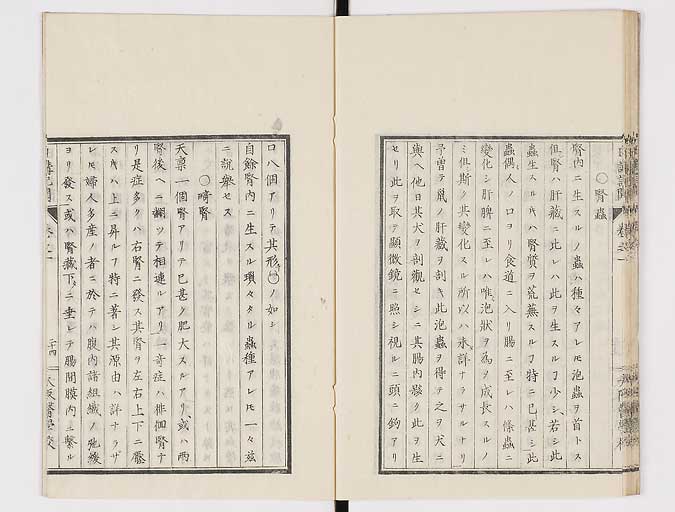 〇腎蟲
腎內ニ生スルノ蟲ハ種々アレ𪜈泡蟲ヲ首トス
但腎ハ肝藏ニ比レハ此ヲ生スルヿ少シ若シ此
蟲生スルキハ腎質ヲ荒蕪スルヿ特ニ已甚シ此
蟲偶人ノ口ヨリ食道ニ入リ腸ニ至レハ條蟲ニ
變化シ肝脾ニ至レハ唯泡狀ヲ為ヲ成長スルノ
ミ但斯ク其變化スル所以ハ未詳ナラサルナリ
予曾テ鼠ノ肝藏ヲ剖キ此泡蟲ヲ得テ之ヲ犬ニ
與ヘ他日其犬ヲ剖觀セシニ其腸內夥ク此ヲ生
セリ此ヲ取テ顯微鏡ニ照シ視ルニ頭ニ鉤アリ
口八個アリテ其形〇ノ如シ
自餘腎內ニ生スル瑣々タル蟲種アレ𪜈一々茲
ニ說舉セス
〇畸腎
天稟一個腎アリテ已甚ク肥大スルアリ或ハ兩
腎後ヘニ翻ツテ相連ルアリ一奇症ハ徘徊腎ナ
リ是症多クハ右腎ニ發ス其腎ヲ左右上下ニ壓
スキハ上ニ昇ルヿ特ニ著シ其源由ハ詳ナラザ
レ𪜈婦人多産ノ者ニ於テハ腹內諸組織ノ弛緩
ヨリ發ス或ハ腎藏下ニ垂レテ腸間膜內ニ繫ル
二十四
大阪醫學校